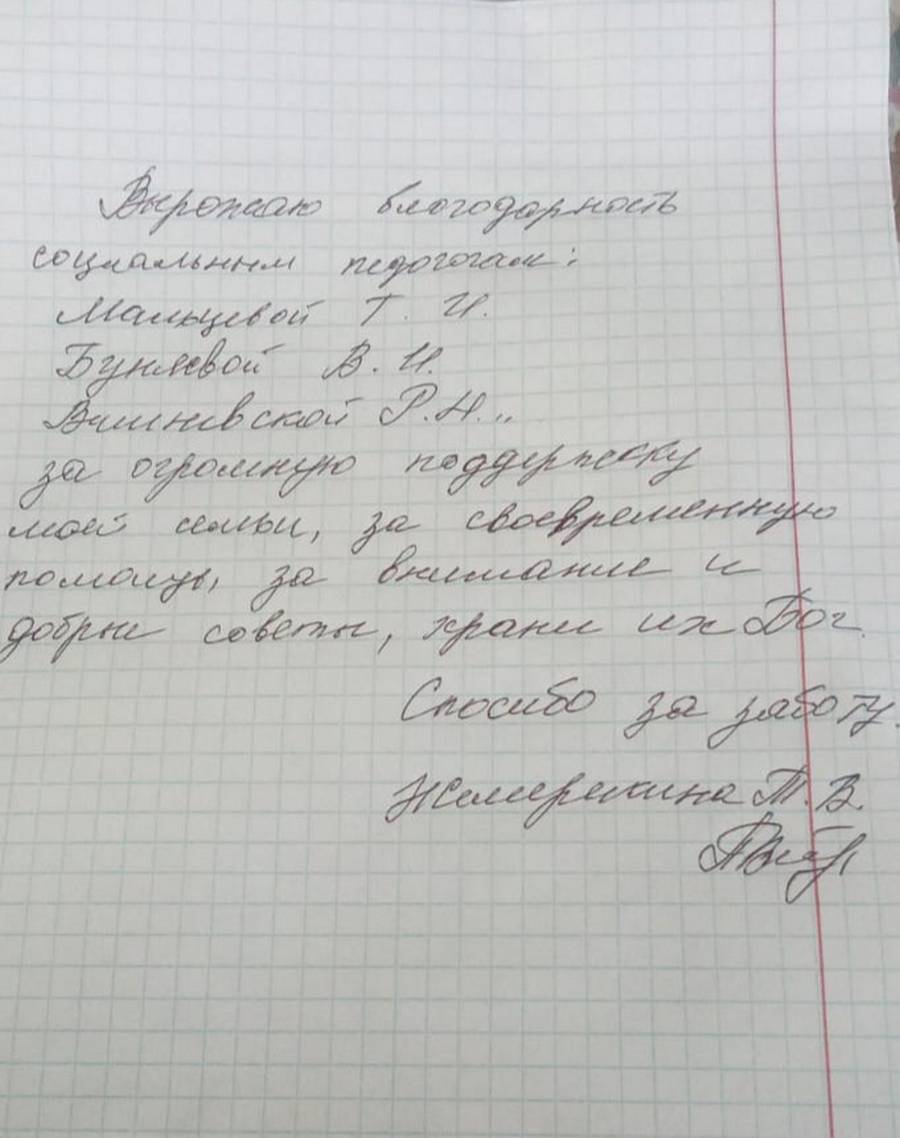 Выражаю благодарность
социальным педагогам:
Мальцевой Т. И.
Буняевой В. И.
Вишневской Р.Н..
за огромную поддержку
моей семьи, за своевременную
помощь, за внимание и
добрые советы, храни их Бог.
Спасибо за заботу.
Т. В.